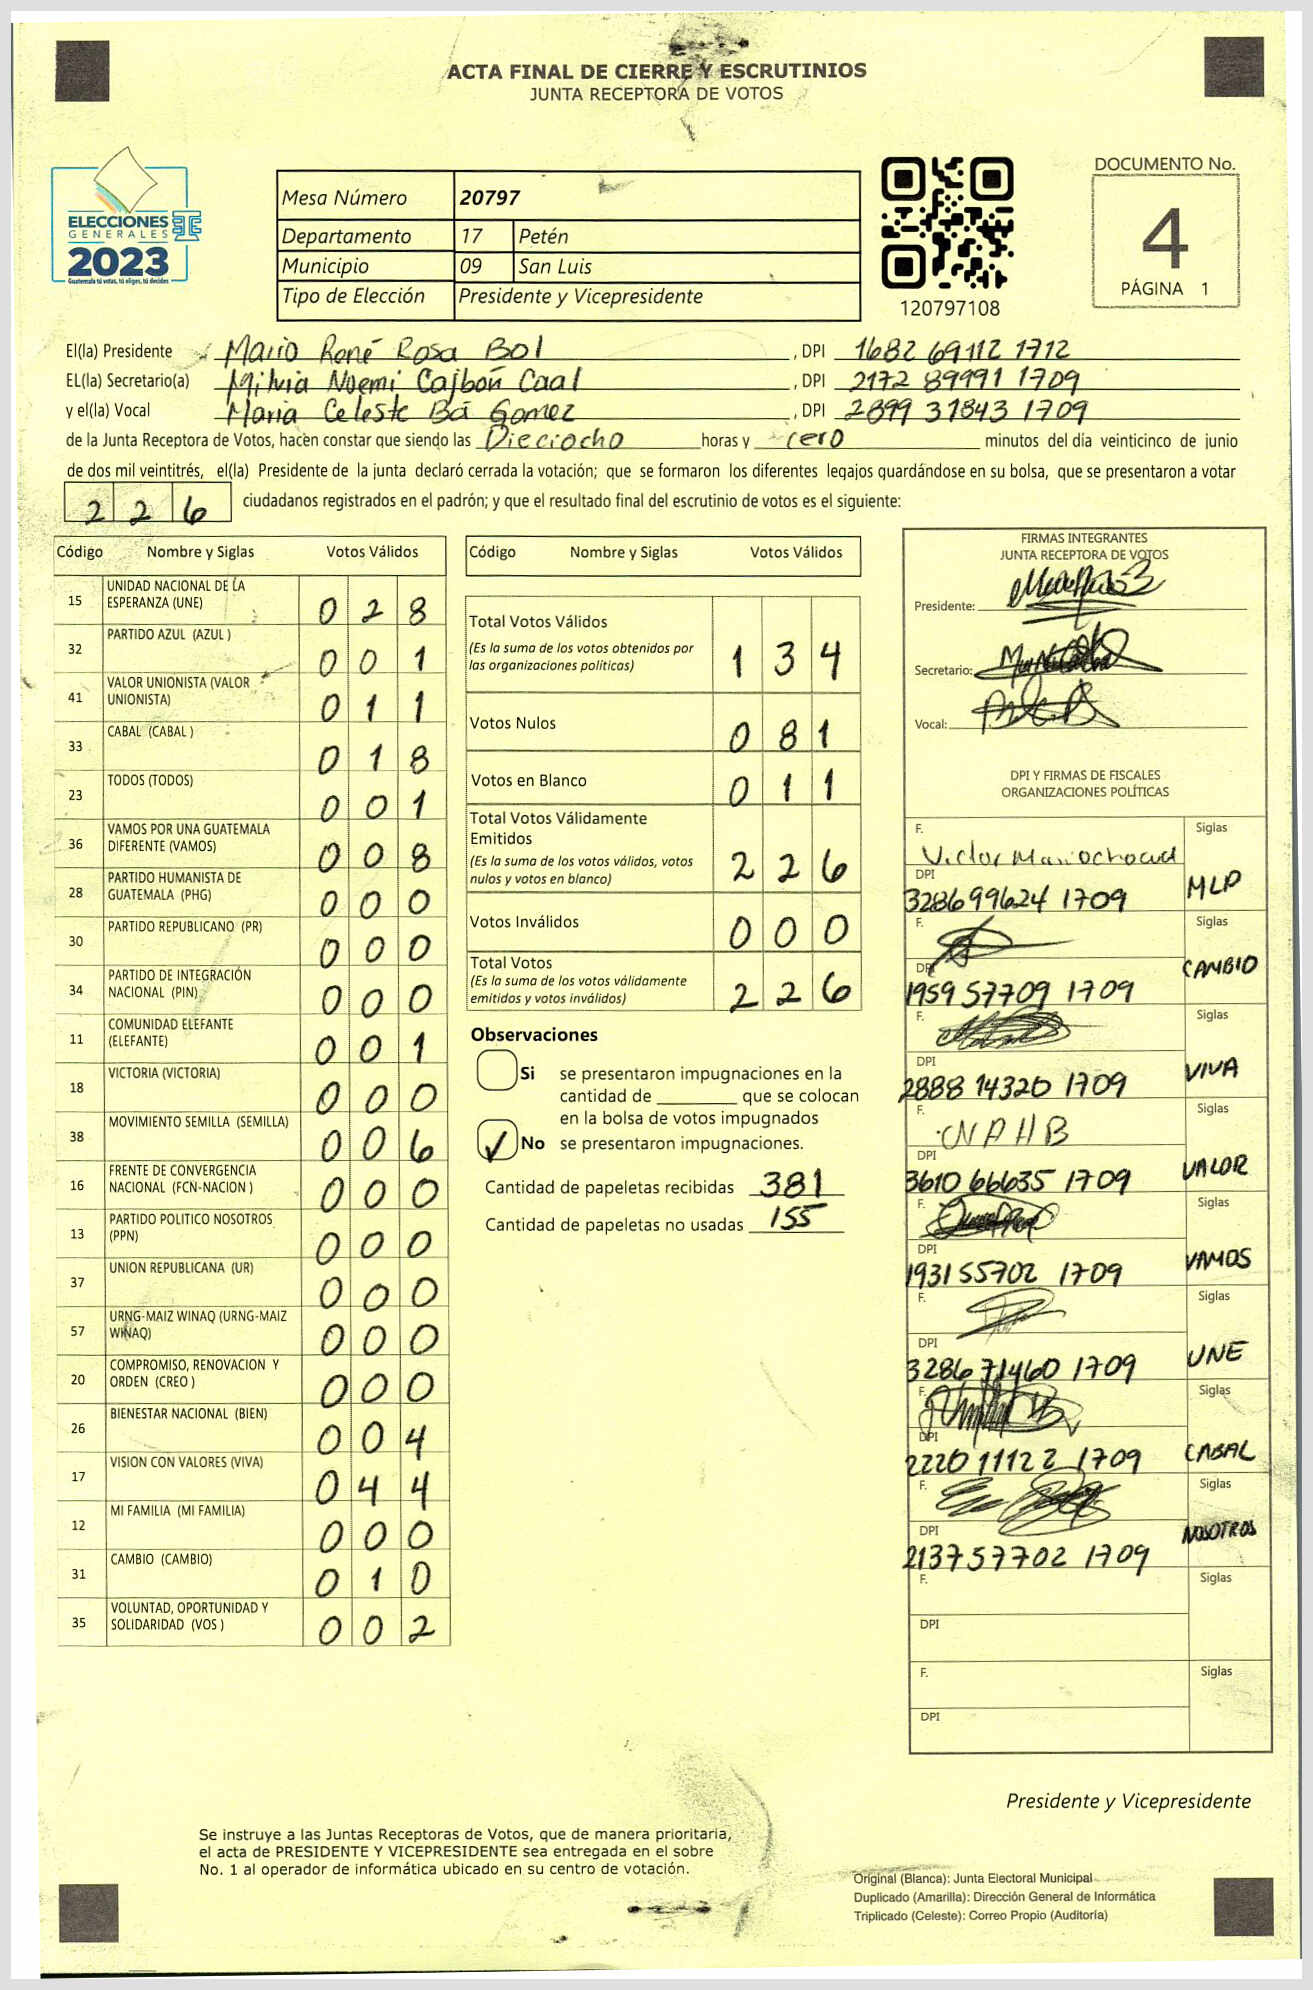 ACTA FINAL DE CIERRE Y ESCRUTINIOS
JUNTA RECEPTORA DE VOTOS
ELECCIONES
GENERALES
2023
Guatemala tú votas, tú eliges, tú decides
Mesa Número 20797
Departamento 17 Petén
Municipio 09 San Luis
Tipo de Elección Presidente y Vicepresidente
120797108
DOCUMENTO No.
4
PÁGINA 1
El(la) Presidente Mario René Rosa Bol , DPI 1682 69112 1712
EL(la) Secretario(a) Milvia Noemi Cajbón Caal , DPI 2172 89991 1709
y el(la) Vocal Maria Celeste Bá Gomez , DPI 2899 31843 1709
de la Junta Receptora de Votos, hacen constar que siendo las Dieciocho horas y cero minutos del día veinticinco de junio
de dos mil veintitrés, el(la) Presidente de la junta declaró cerrada la votación; que se formaron los diferentes legajos guardándose en su bolsa, que se presentaron a votar
226 ciudadanos registrados en el padrón; y que el resultado final del escrutinio de votos es el siguiente:
Código Nombre y Siglas Votos Válidos
15 UNIDAD NACIONAL DE LA
ESPERANZA (UNE) 028
32 PARTIDO AZUL (AZUL ) 001
41 VALOR UNIONISTA (VALOR
UNIONISTA) 011
33 CABAL (CABAL ) 018
23 TODOS (TODOS) 001
36 VAMOS POR UNA GUATEMALA
DIFERENTE (VAMOS) 008
28 PARTIDO HUMANISTA DE
GUATEMALA (PHG) 000
30 PARTIDO REPUBLICANO (PR) 000
34 PARTIDO DE INTEGRACIÓN
NACIONAL (PIN) 000
11 COMUNIDAD ELEFANTE
(ELEFANTE) 001
18 VICTORIA (VICTORIA) 000
38 MOVIMIENTO SEMILLA (SEMILLA) 006
16 FRENTE DE CONVERGENCIA
NACIONAL (FCN-NACION ) 000
13 PARTIDO POLITICO NOSOTROS
(PPN) 000
37 UNION REPUBLICANA (UR) 000
57 URNG-MAIZ WINAQ (URNG-MAIZ
WINAQ) 000
20 COMPROMISO, RENOVACION Y
ORDEN (CREO ) 000
26 BIENESTAR NACIONAL (BIEN) 004
17 VISION CON VALORES (VIVA) 044
12 MI FAMILIA (MI FAMILIA) 000
31 CAMBIO (CAMBIO) 010
35 VOLUNTAD, OPORTUNIDAD Y
SOLIDARIDAD (VOS ) 002
Código Nombre y Siglas Votos Válidos
Total Votos Válidos
(Es la suma de los votos obtenidos por
las organizaciones políticas) 134
Votos Nulos 081
Votos en Blanco 011
Total Votos Válidamente
Emitidos
(Es la suma de los votos válidos, votos
nulos y votos en blanco) 226
Votos Inválidos 000
Total Votos
(Es la suma de los votos válidamente
emitidos y votos inválidos) 226
Observaciones
Si se presentaron impugnaciones en la
cantidad de ________ que se colocan
en la bolsa de votos impugnados
✓ No se presentaron impugnaciones.
Cantidad de papeletas recibidas 381
Cantidad de papeletas no usadas 155
FIRMAS INTEGRANTES
JUNTA RECEPTORA DE VOTOS
Presidente:
Secretario:
Vocal:
DPI Y FIRMAS DE FISCALES
ORGANIZACIONES POLÍTICAS
F. Siglas
Victor
DPI
328699624 1709 MLP
F. Siglas
DPI
1959 57709 1709 CAMBIO
F. Siglas
DPI
2888 14320 1709 VIVA
F. Siglas
DPI
3610 66635 1709 VALOR
F. Siglas
DPI
1931 55702 1709 VAMOS
F. Siglas
DPI
3286 71460 1709 UNE
F. Siglas
DPI
2220 11122 1709 CABAL
F. Siglas
DPI
2137 57702 1709 NOSOTROS
F. Siglas
DPI
F. Siglas
DPI
Presidente y Vicepresidente
Se instruye a las Juntas Receptoras de Votos, que de manera prioritaria,
el acta de PRESIDENTE Y VICEPRESIDENTE sea entregada en el sobre
No. 1 al operador de informática ubicado en su centro de votación.
Original (Blanca): Junta Electoral Municipal
Duplicado (Amarilla): Dirección General de Informática
Triplicado (Celeste): Correo Propio (Auditoría)